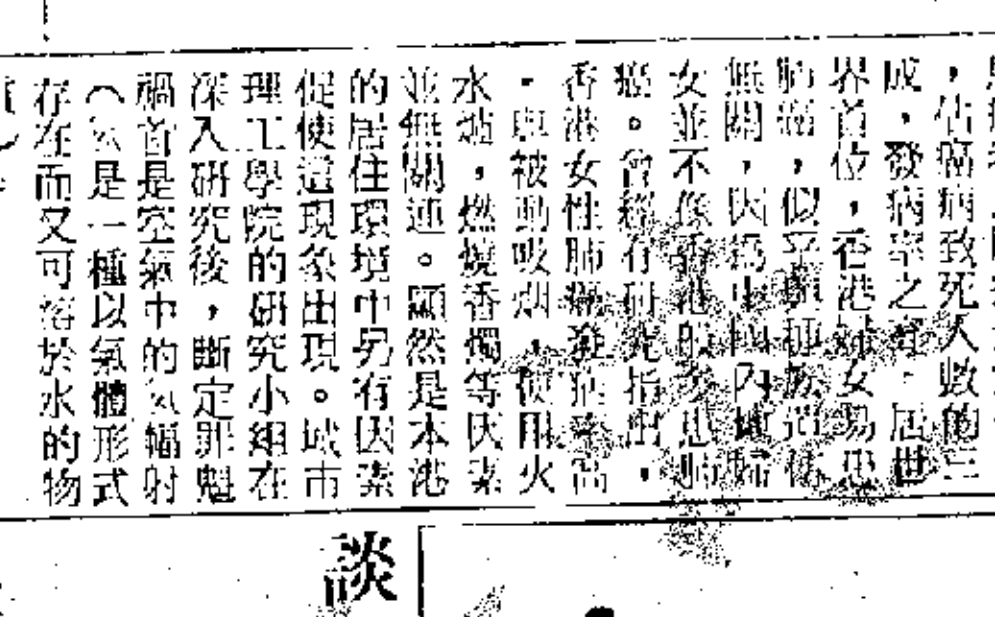 ，佔癌病致死人數的三
成，發病率之高，居世
界首位，香港婦女易患
肺癌，似乎與種族遺傳
無關，因為中國內地婦
女並不像香港般多患肺
癌。曾經有研究指出，
香港女性肺癌發病率高
，與被動吸烟，使用火
水爐，燃燒香燭等因素
並無關連。顯然是本港
的居住環境中另有因素
促使這現象出現。城市
理工學院的研究小組在
深入研究後，斷定罪魁
禍首是空氣中的氡輻射
（氡是一種以氣體形式
存在而又可溶於水的物
談